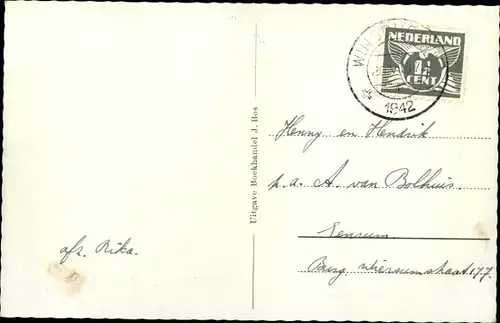 NEDERLAND
1½
CENT
1942
Uitgave Boekhandel J. Bos
Henny en Hendrik
p.a. A. van Bolhuis
Eenrum
Burg. Wiersumstraat 177.
afz. Rika.